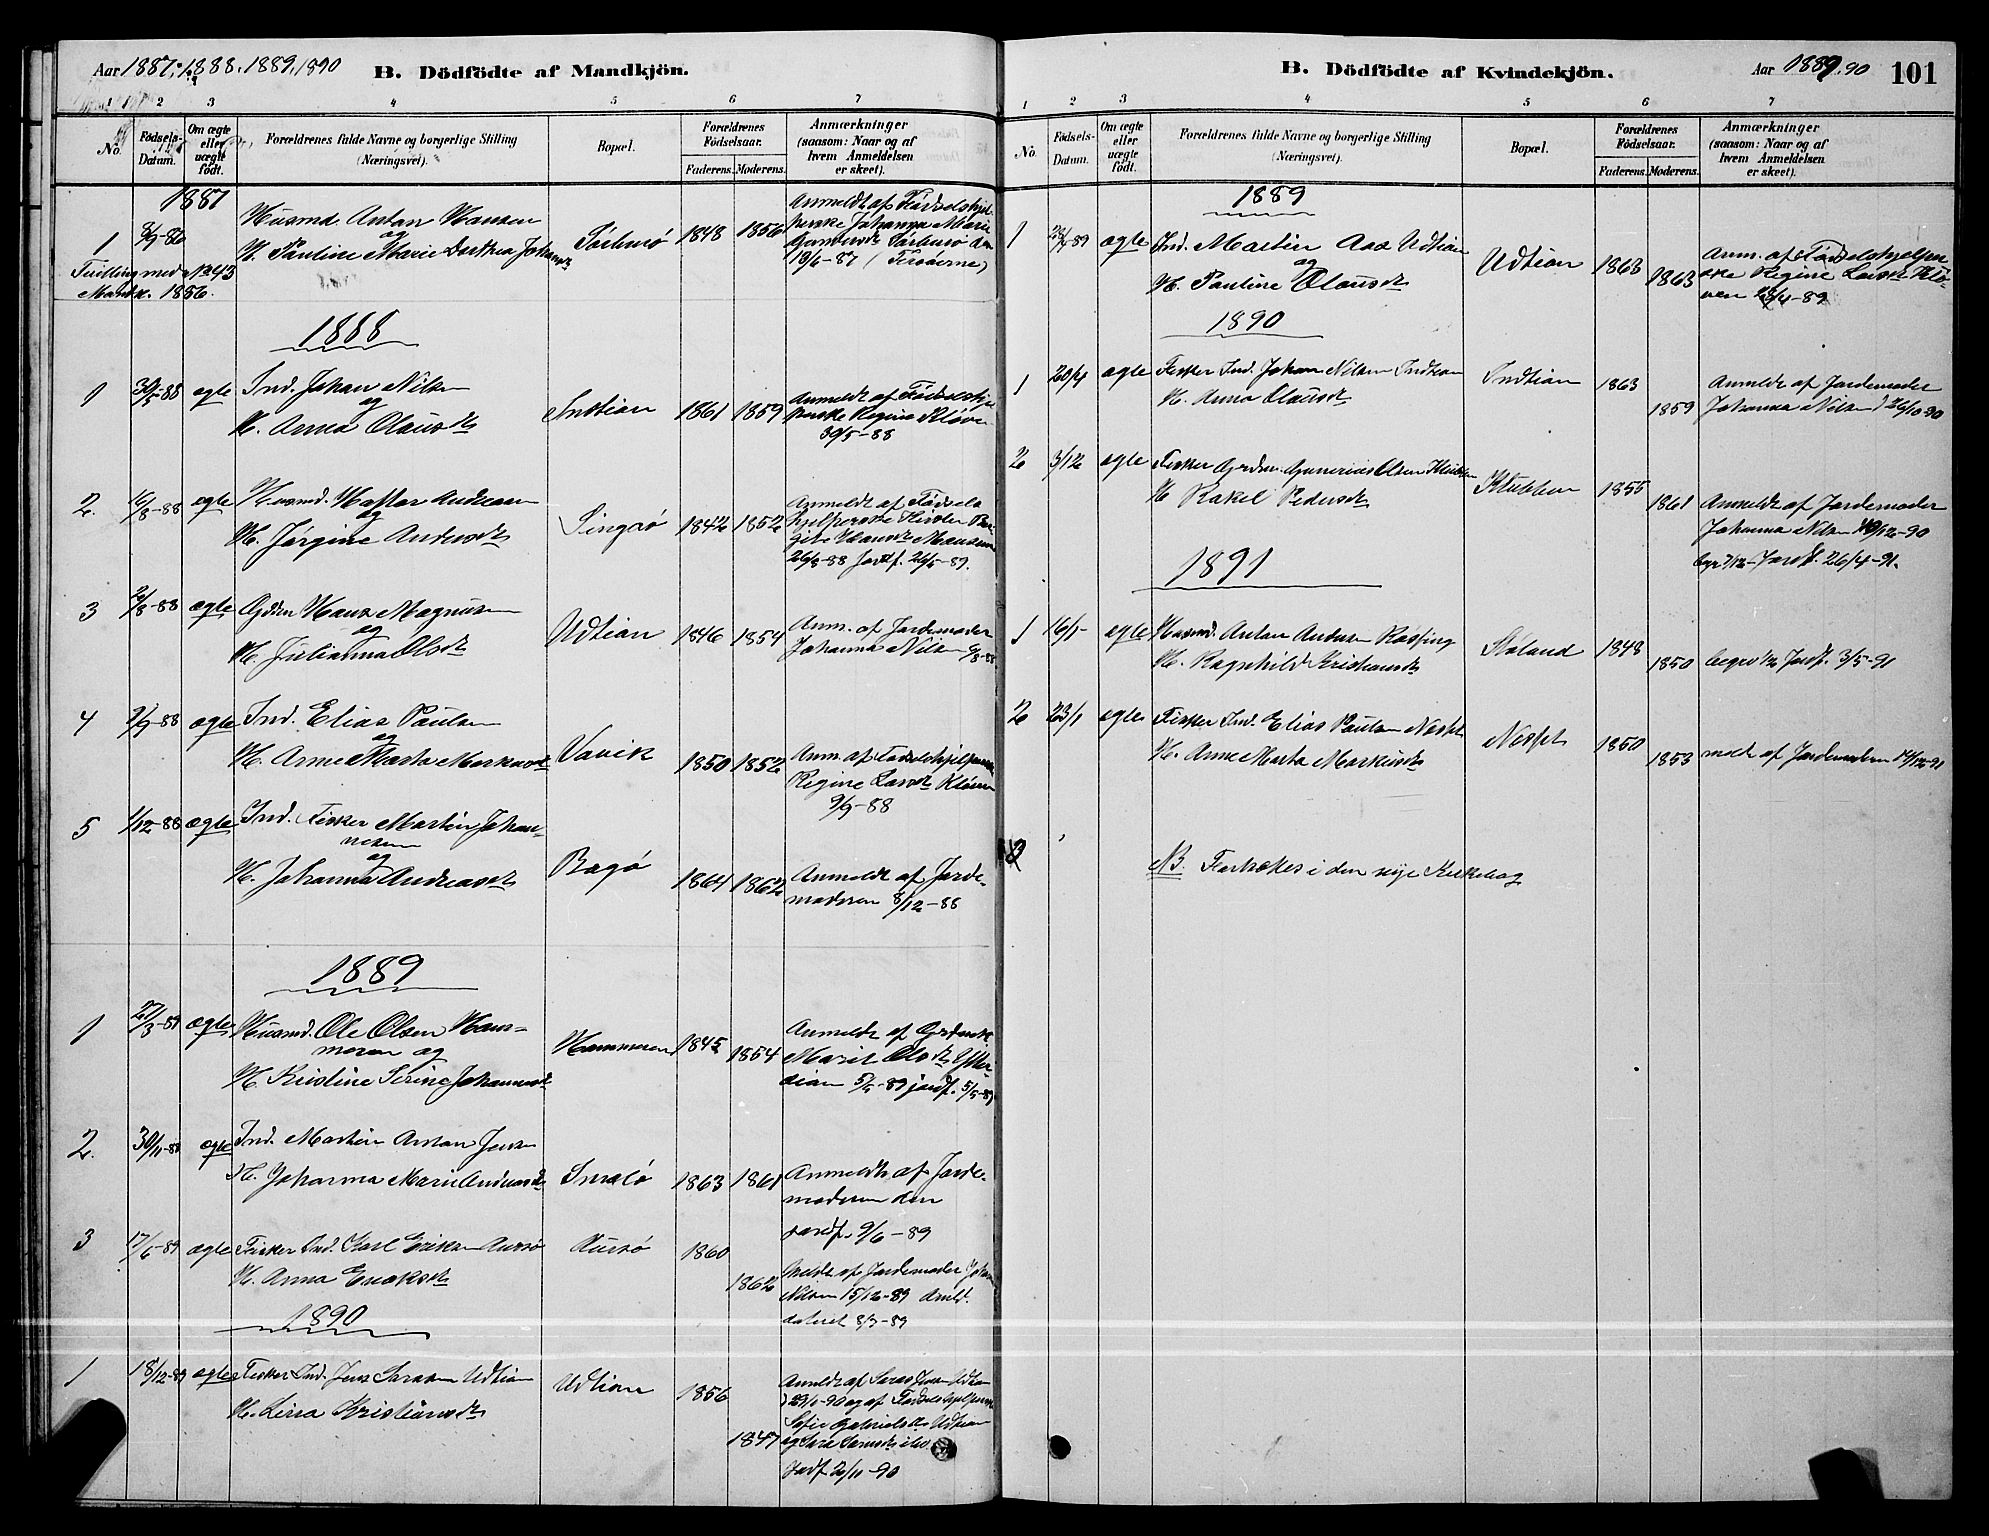 Aar 1887, 1888, 1889, 1890
B. Dödfödte af Mandkjön.
1 2 3 4 5 6 7
No.
Födsels-Datum.
Om ægte eller uægte født.
Forældrenes fulde Navne og borgerlige Stilling (Næringsvei).
Bopæl.
Forældrenes Födselsaar.
Faderens. Moderens.
Anmærkninger (saasom: Naar og af hvem Anmeldelsen er skeet).
1887
1 Husmd. Anton Hansen
og
H. Pauline Marie Dorthea
1848 1856
Anmeldt af Fødselshjel-
perske Johanna Marie
Tvilling med No 43
Mandk. 1856.
1888
1 30/5-88 ægte Ind. Johan Nilsen
og
H. Anna Olausdt
Indtian 1861 1859
Anmeldt af Fødselshje
perske Regine Kløven
30/5-88
2. 16/8-88 ægte Husmd. Andreasen
og
H. Jørgine Andersdt
1842 1852
Anmeldt af Fødsels
hjelperske
26/8-88 Jordf. 26/5-89.
3 6/8-88 ægte Hans Magnusen
og
H. Julianna Olsdt
Udtian 1846 1854
Anm. af Jordemoder
Johanna Nilsen 6/8-88
4 9/9-88 ægte Ind. Elias Paulsen
og
H. Anne Marta Markusdt
Vavik 1850 1852
Anm. af Fødselshjelperske
Regine Larsdt Kløven
9/9-88
5 1/12-88 ægte Ind. Fisker Martin Johan-
nesen
og
H. Johanna Andreasdt
Bagø 1864 1862
Anmeldt af Jorde-
moderen 8/12-88
1889
1 27/3-89 ægte Husmd. Ole Olsen Ham-
meren og
H. Kristine Serine Johannesdt
Hammeren 1845 1854
Anmeldt af
Marit Olsdt Ytter-
dian 5/5-89 jordf. 5/5-89
2. 30/11-88 ægte Ind. Martin Anton Jensen
H. Johanna Marie Andreasdt
1863 1861
Anmeldt af Jorde-
moderen den
jordf. 9/6-89
3 17/6-89 ægte Fisker Ind. Karl Eriksen Aursø
H. Anna
Aursø 1860
1862
Meldt af Jordemoder Johan
Nilsen 15/12-89
dateret 8/7-89
1890
1 18/12-89 ægte Fisker Ind. Jens Udtian
H. Kristiansdt
Udtian 1856
1847
Anmeldt af
29/1-90 og af Fødselshjelperske
Sofie Gabrielsdt Udtian
Jordf 2/11-90
B. Dödfödte af Kvindekjön.
Aar 1889. 90
101
1 2 3 4 5 6 7
No.
Födsels-Datum.
Om ægte eller uægte födt.
Forældrenes fulde Navne og borgerlige Stilling (Næringsvei).
Bopæl.
Forældrenes Födselsaar.
Faderens. Moderens.
Anmærkninger (saasom: Naar og af hvem Anmeldelsen er skeet).
1889
1 ægte Ind. Martin Aas Udtian
og
H. Pauline Olausdt
Udtian 1863 1863
Anm. af Fødselshjelper
ske Regine Larsdt Klø-
ven
1890
1 20/4 ægte Fisker Ind. Johan Nilsen Indtian
H. Anna Olausdt
Indtian 1863
1859
Anmeldt af Jordemoder
Johanna Nilsen 26/10-90
2 3/12 ægte Fisker Grdm. Gunerius Olsen Klubben
H. Rakel Pedersdt
Klubben 1855
1861
Anmeldt af Jordemoder
Johanna Nilsen
Jordf. 26/4-91.
1891
1 16/1 ægte Husmd. Anton Andersen Røssing
H. Ragnhild Kristiansdt
1848
1850
Jordf. 3/5-91
2 23/1 ægte Fisker Ind. Elias Paulsen Nesset
H. Anne Marta Markusdt
Nesset 1850
1853
meldt af Jordemoderen 14/12-91
3
NB. Fortsættes i den nye Kirkebog